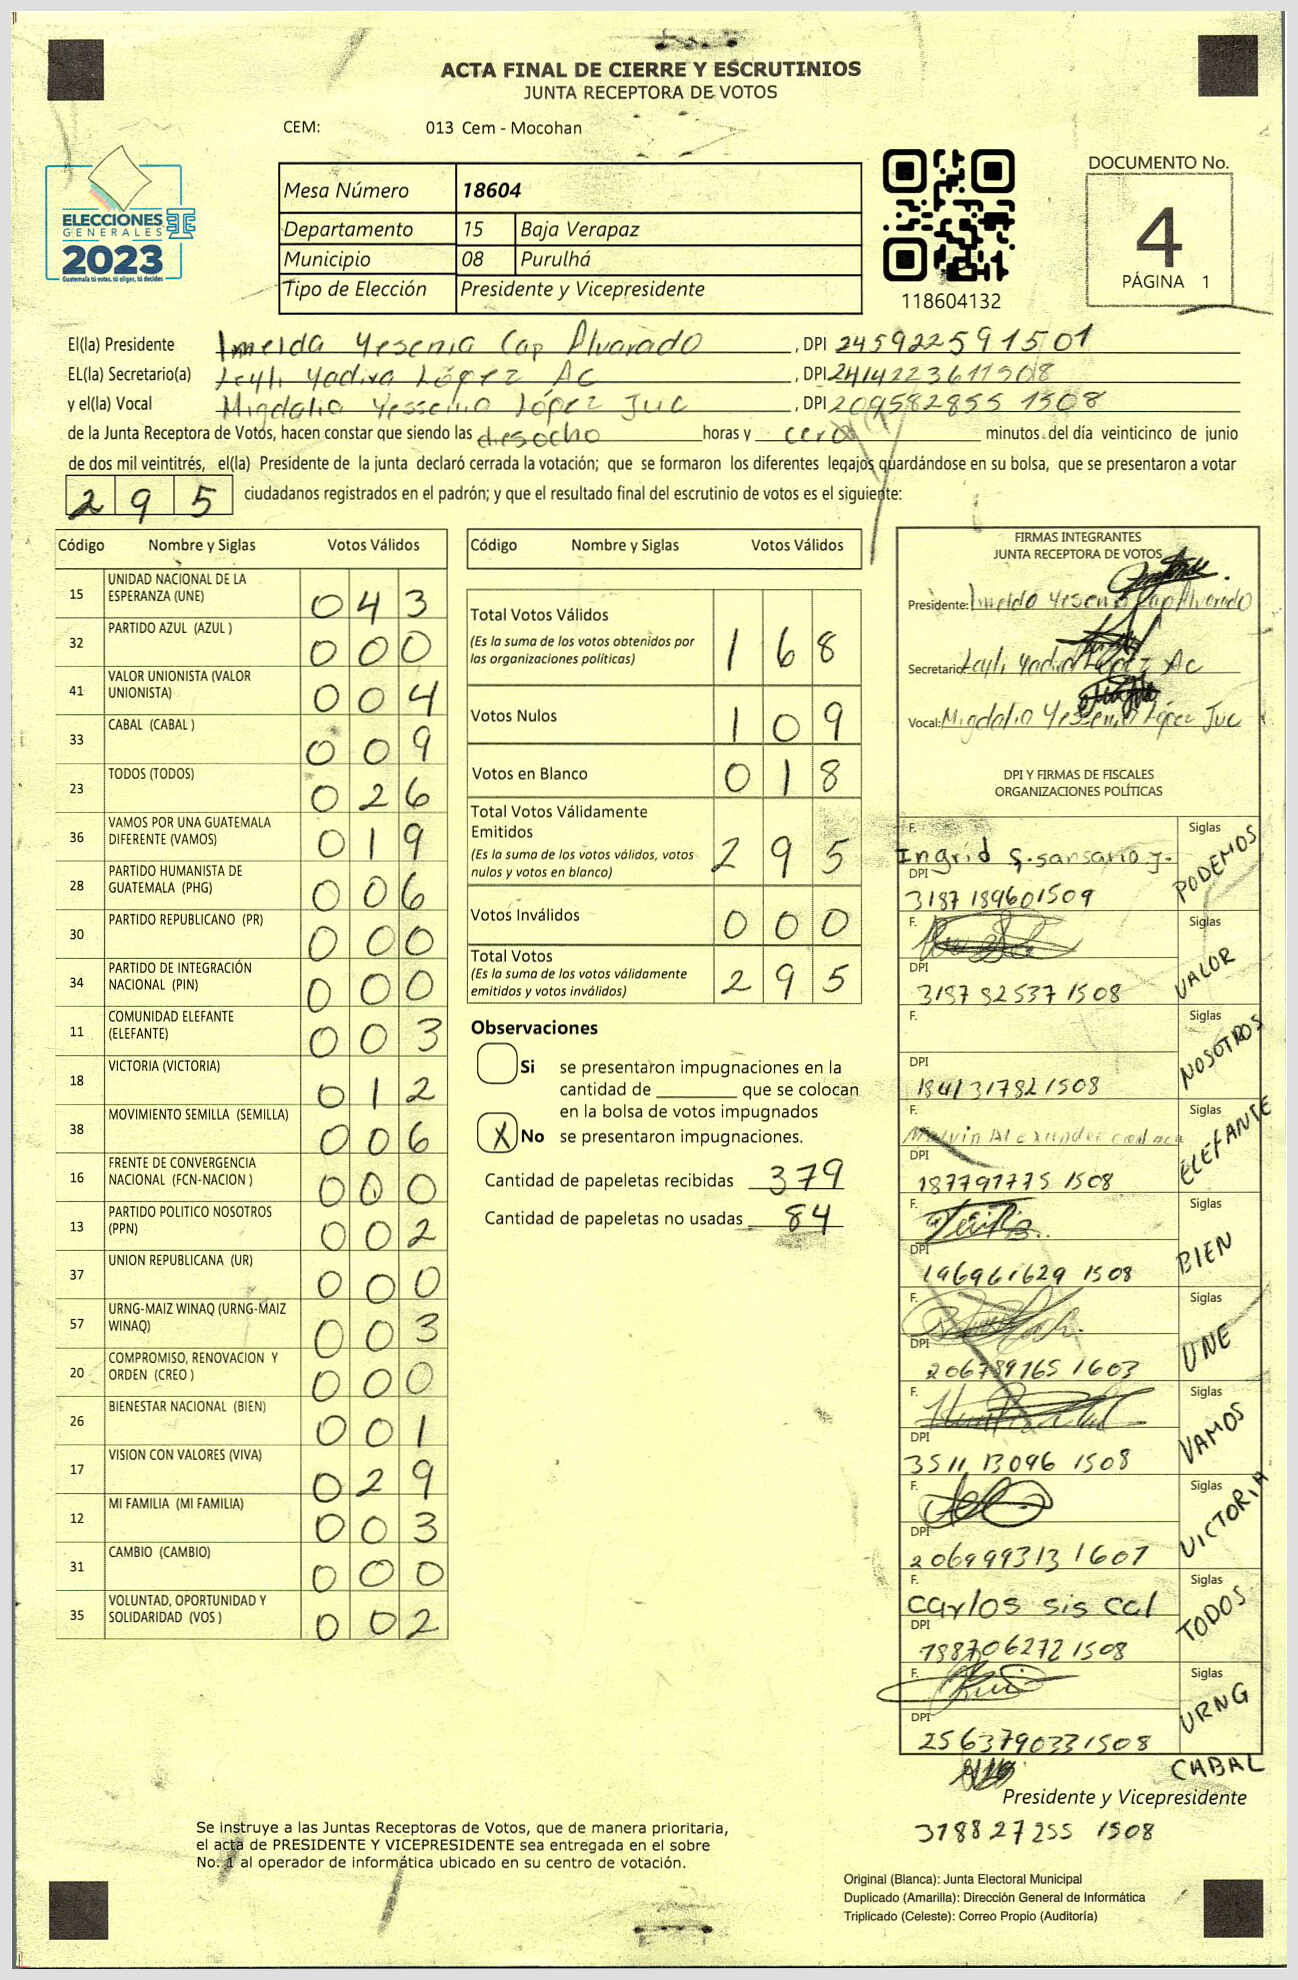 ACTA FINAL DE CIERRE Y ESCRUTINIOS
JUNTA RECEPTORA DE VOTOS
CEM: 013 Cem - Mocohan
ELECCIONES
GENERALES
2023
Guatemala tú votas, tú eliges, tú decides
Mesa Número 18604
Departamento 15 Baja Verapaz
Municipio 08 Purulhá
Tipo de Elección Presidente y Vicepresidente
118604132
DOCUMENTO No.
4
PÁGINA 1
El(la) Presidente Imelda Yesenia Cap Alvarado, DPI 2459225911501
EL(la) Secretario(a) Leyli Yadira López Ac, DPI 2414223611508
y el(la) Vocal Migdalia Yessenia López Juc, DPI 209582855 1508
de la Junta Receptora de Votos, hacen constar que siendo las diesocho horas y cero minutos del día veinticinco de junio
de dos mil veintitrés, el(la) Presidente de la junta declaró cerrada la votación; que se formaron los diferentes legajos guardándose en su bolsa, que se presentaron a votar
295 ciudadanos registrados en el padrón; y que el resultado final del escrutinio de votos es el siguiente:
Código Nombre y Siglas Votos Válidos
15 UNIDAD NACIONAL DE LA ESPERANZA (UNE) 043
32 PARTIDO AZUL (AZUL ) 000
41 VALOR UNIONISTA (VALOR UNIONISTA) 004
33 CABAL (CABAL ) 009
23 TODOS (TODOS) 026
36 VAMOS POR UNA GUATEMALA DIFERENTE (VAMOS) 019
28 PARTIDO HUMANISTA DE GUATEMALA (PHG) 006
30 PARTIDO REPUBLICANO (PR) 000
34 PARTIDO DE INTEGRACIÓN NACIONAL (PIN) 000
11 COMUNIDAD ELEFANTE (ELEFANTE) 003
18 VICTORIA (VICTORIA) 012
38 MOVIMIENTO SEMILLA (SEMILLA) 006
16 FRENTE DE CONVERGENCIA NACIONAL (FCN-NACION ) 000
13 PARTIDO POLITICO NOSOTROS (PPN) 002
37 UNION REPUBLICANA (UR) 000
57 URNG-MAIZ WINAQ (URNG-MAIZ WINAQ) 003
20 COMPROMISO, RENOVACION Y ORDEN (CREO ) 000
26 BIENESTAR NACIONAL (BIEN) 001
17 VISION CON VALORES (VIVA) 029
12 MI FAMILIA (MI FAMILIA) 003
31 CAMBIO (CAMBIO) 000
35 VOLUNTAD, OPORTUNIDAD Y SOLIDARIDAD (VOS ) 002
Código Nombre y Siglas Votos Válidos
Total Votos Válidos 168
(Es la suma de los votos obtenidos por
las organizaciones políticas)
Votos Nulos 109
Votos en Blanco 018
Total Votos Válidamente
Emitidos 295
(Es la suma de los votos válidos, votos
nulos y votos en blanco)
Votos Inválidos 000
Total Votos 295
(Es la suma de los votos válidamente
emitidos y votos inválidos)
Observaciones
Si se presentaron impugnaciones en la
cantidad de ________ que se colocan
en la bolsa de votos impugnados
X No se presentaron impugnaciones.
Cantidad de papeletas recibidas 379
Cantidad de papeletas no usadas 84
FIRMAS INTEGRANTES
JUNTA RECEPTORA DE VOTOS
Presidente: Imelda Yesenia Cap Alvarado
Secretario: Leyli Yadira López Ac
Vocal: Migdalia Yessenia López Juc
DPI Y FIRMAS DE FISCALES
ORGANIZACIONES POLÍTICAS
F. Ingrid Siglas PODEMOS
DPI 3187 189601509
F. Siglas VALOR
DPI 318782537 1508
F. Siglas NOSOTROS
DPI 184131782 1508
F. Melvin Alexander Siglas ELEFANTE
DPI 187797775 1508
F. Siglas BIEN
DPI 196961629 1508
F. Siglas UNE
DPI 206789765 1603
F. Siglas VAMOS
DPI 3511 13096 1508
F. Siglas VICTORIA
DPI 206999313 1607
F. Carlos sis cal Siglas TODOS
DPI 198706272 1508
F. Siglas URNG
DPI 2563790331508
CABAL
Presidente y Vicepresidente
318827255 1508
Se instruye a las Juntas Receptoras de Votos, que de manera prioritaria,
el acta de PRESIDENTE Y VICEPRESIDENTE sea entregada en el sobre
No. 1 al operador de informática ubicado en su centro de votación.
Original (Blanca): Junta Electoral Municipal
Duplicado (Amarilla): Dirección General de Informática
Triplicado (Celeste): Correo Propio (Auditoría)